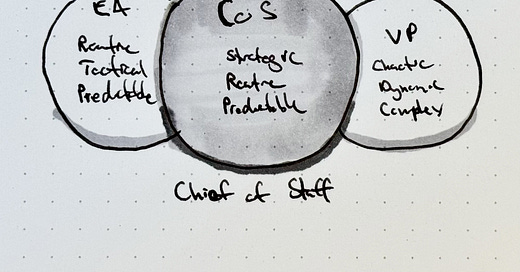 EA
Routine
Tactical
Predictable
CoS
Strategic
Routine
Predictable
VP
Chaotic
Dynamic
Complex
Chief of Staff